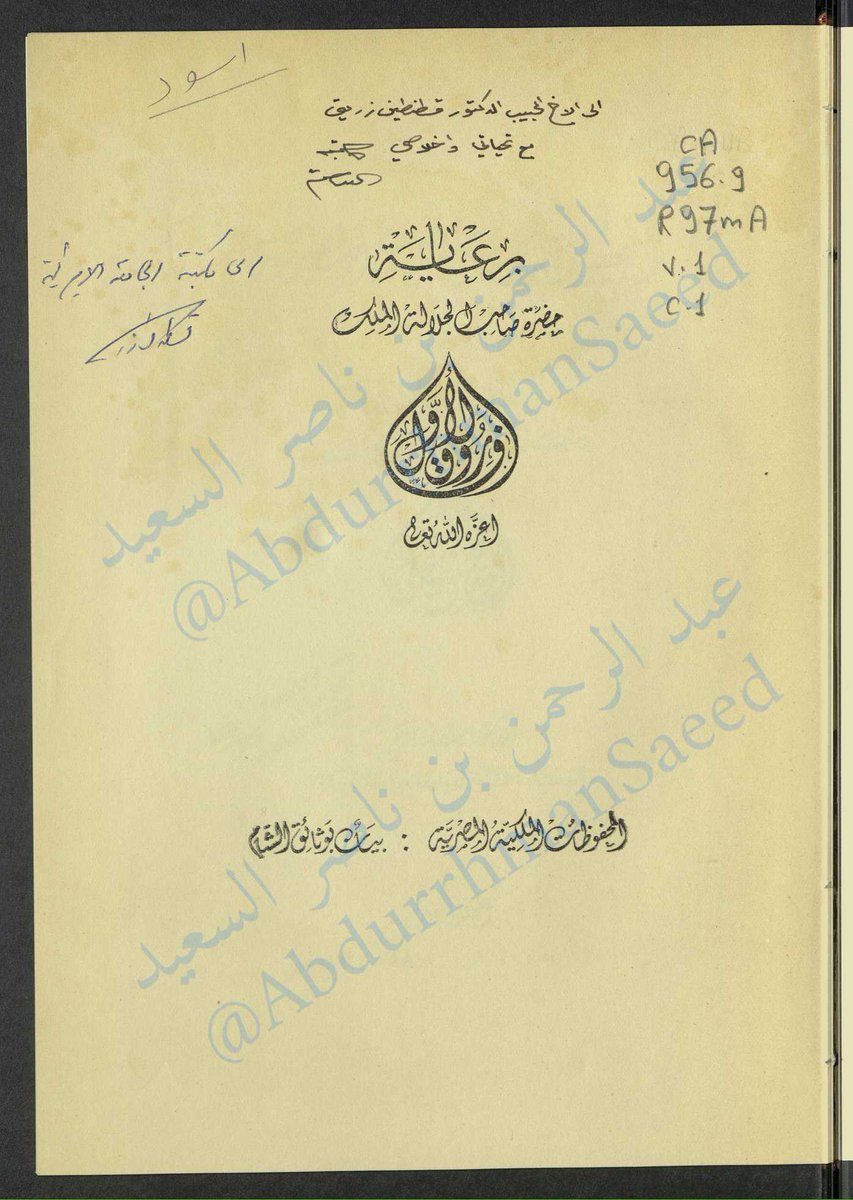 اسود
الى الاخ الحبيب الدكتور قسطنطين زريق
مع تحياتي واخلاصي
CA
956.9
R97mA
v.1
c.1
الى مكتبة الجامعة الاميركية
برعاية
حضرة صاحب الجلالة الملك
فاروق الأول
اعزه الله تعالى
المحفوظات الملكية المصرية : بيان بوثائق الشام
عبد الرحمن بن ناصر السعيد
@AbdurrhmanSaeed
عبد الرحمن بن ناصر السعيد
@AbdurrhmanSaeed